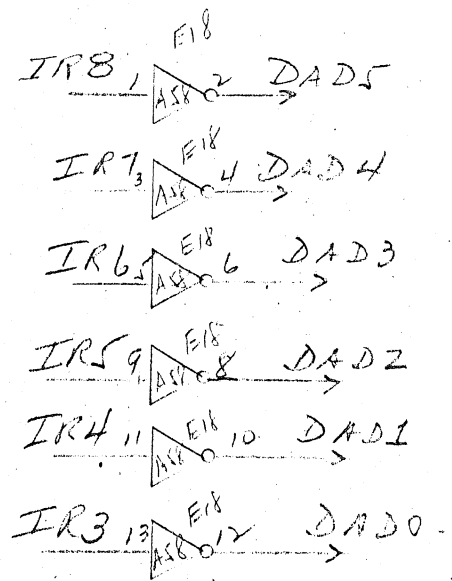 E18
IR8 1 A58 2 DAD5
E18
IR7 3 A58 4 DAD4
E18
IR6 5 A58 6 DAD3
E18
IR5 9 A58 8 DAD2
E18
IR4 11 A58 10 DAD1
E18
IR3 13 A58 12 DAD0